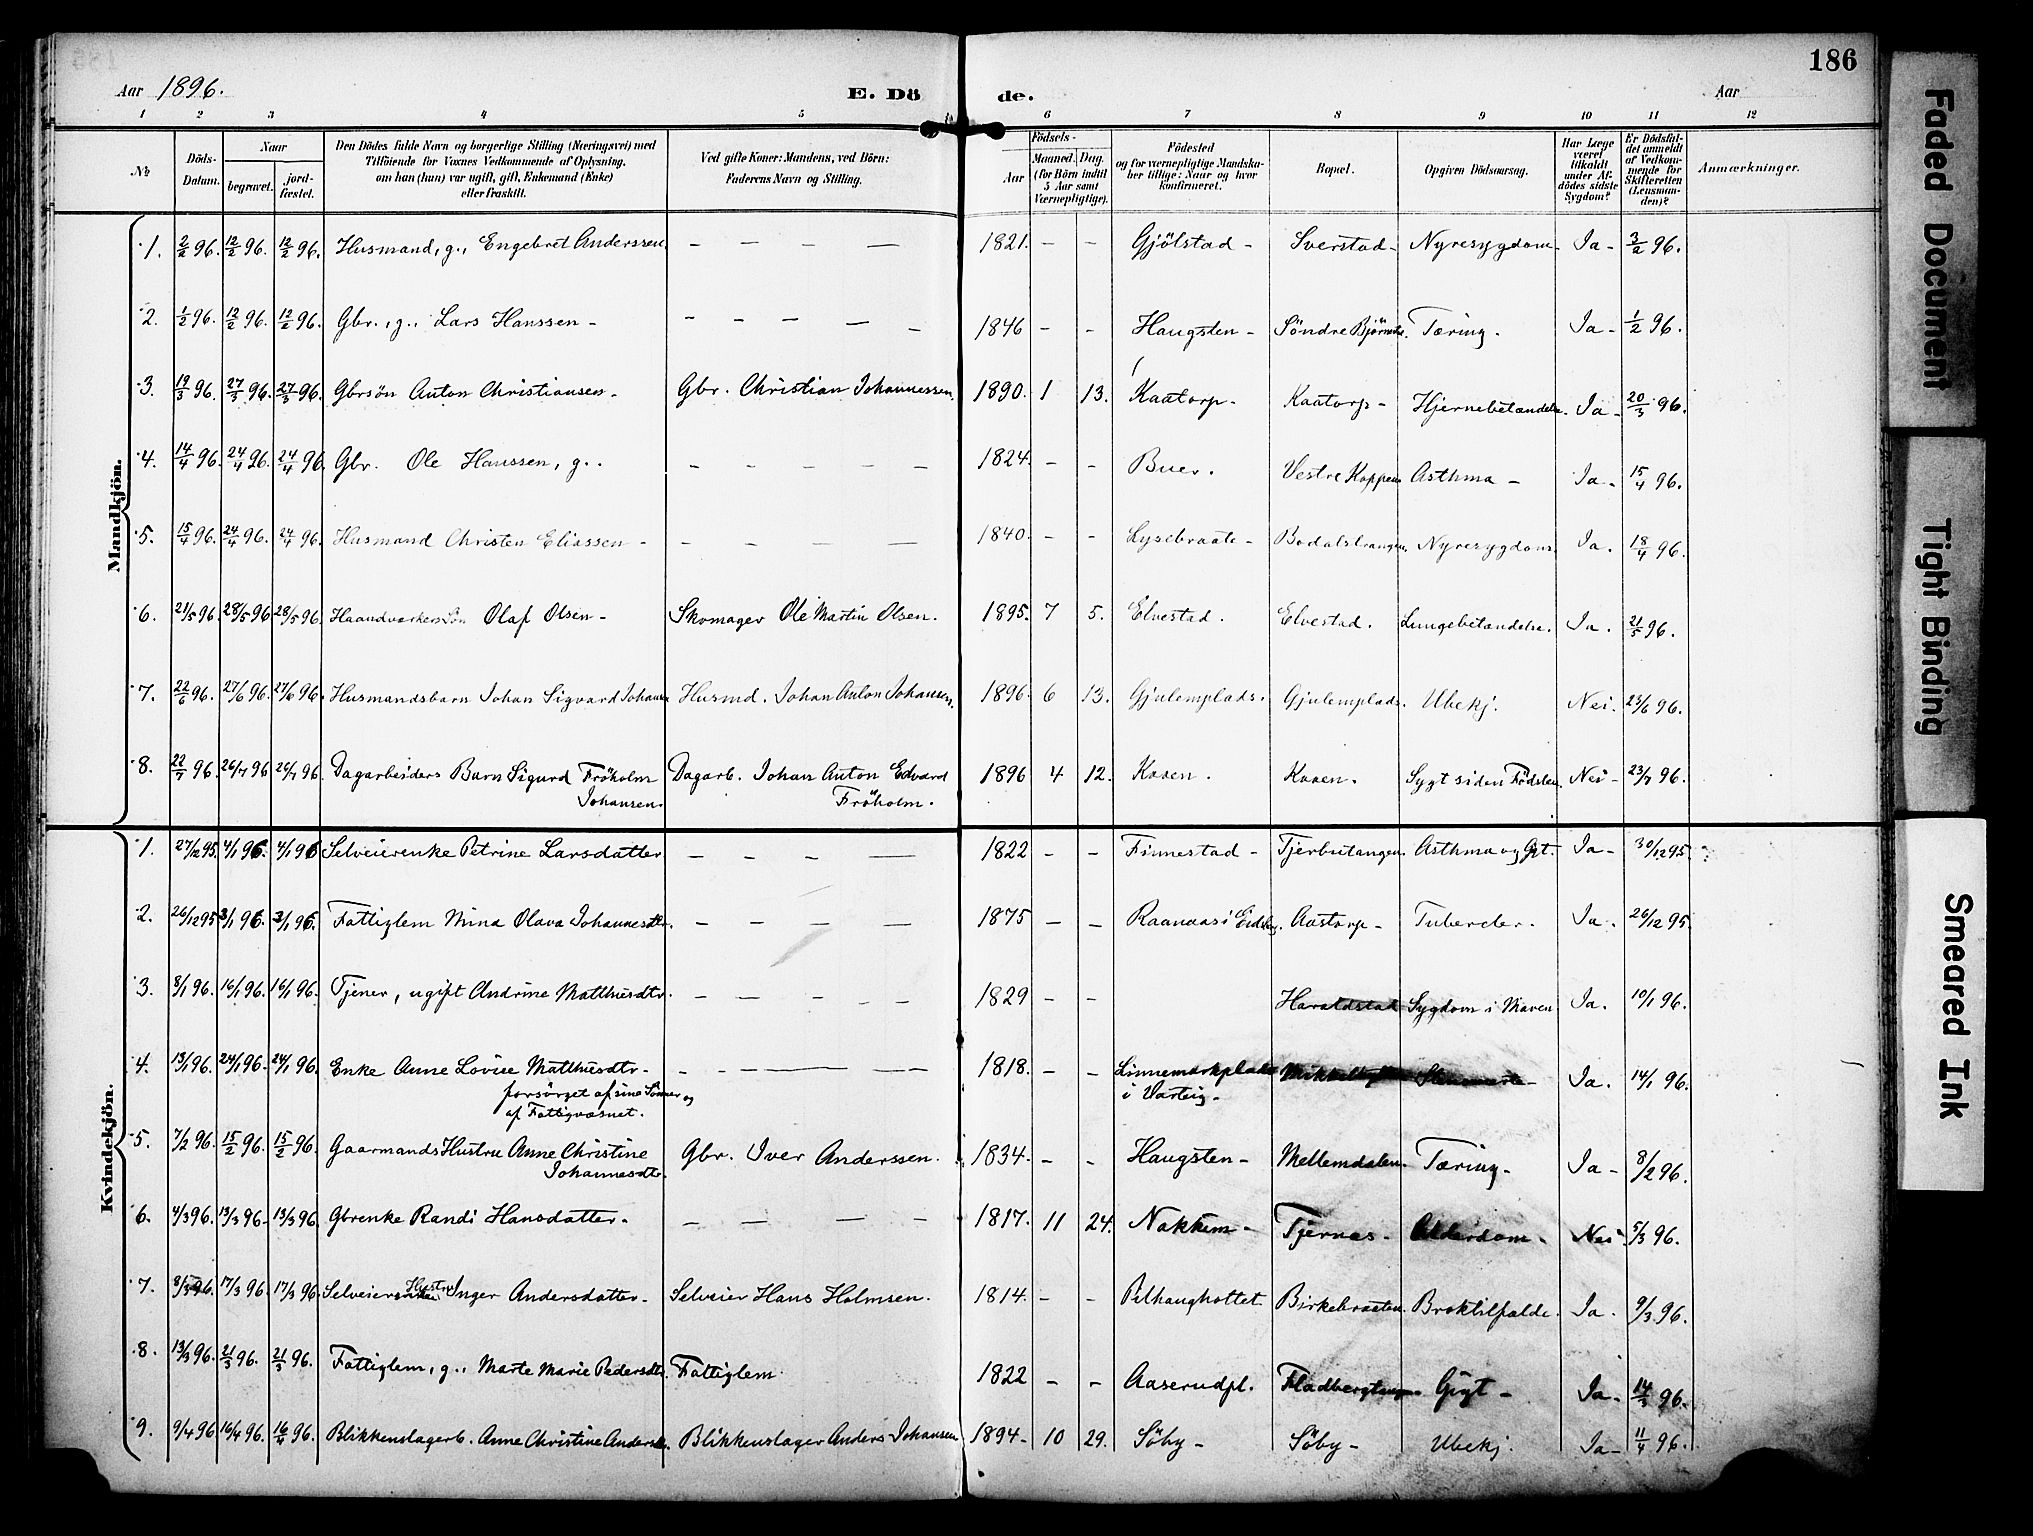 186
Aar 1896. E. Dö de. Aar
1 2 3 4 5 6 7 8 9 10 11 12
№ Döds-Datum. Naar begravet. jord-fæstet. Den Dödes fulde Navn og borgerlige Stilling (Næringsvei) med Tilföiende for Voxnes Vedkommende af Oplysning, om han (hun) var ugift, gift, Enkemand (Enke) eller fraskilt. Ved gifte Koner: Mandens, ved Börn: Faderens Navn og Stilling. Födsels- Aar Maaned. Dag. (for Börn indtil 5 Aar samt Værnepligtige). Födested og for værnepligtige Mandskaber tillige: Naar og hvor konfirmeret. Bopæl. Opgiven Dödsaarsag. Har Læge været tilkaldt under Afdödes sidste Sygdom? Er Dödsfaldet anmeldt af Vedkommende for Skifteretten (Lensmanden)? Anmærkninger.
Mandkjön.
1. 2/2 96. 12/2 96. 12/2 96. Husmand, g., Engebret Anderssen — — — — 1821. — — Gjölstad — Sverstad — Nyresygdom — Ja — 3/2 96.
2. 1/2 96. 12/2 96. 12/2 96. Gbr., g., Lars Hanssen — — — — — — 1846 — — Haugsten — Söndre Tæring. Ja — 1/2 96.
3. 19/3 96. 27/3 96. 27/3 96. Gbrsön Anton Christiansen — Gbr. Christian Johannessen. 1890. 1 13. Kaatorp — Kaatorp — Hjernebetændelse. Ja — 20/3 96.
4. 14/4 96. 24/4 96. 24/4 96. Gbr. Ole Hanssen, g.. — — — — — 1824. — — Buer. Vestre Koppen Asthma — Ja — 15/4 96.
5. 15/4 96. 24/4 96. 24/4 96. Husmand Christen Eliassen — — — — — 1840. — — Lysebraate — Nyresygdom. Ja. 18/4 96.
6. 21/5 96. 28/5 96 28/5 96. Haandværkers Sön Olaf Olsen — Skomager Ole Martin Olsen. 1895. 7 5. Elvestad. Elvestad. Lungebetændelse. Ja. 21/5 96.
7. 22/6 96. 27/6 96. 27/6 96. Husmandsbarn Johan Sigvard Johansen Husmd. Johan Anton Johansen. 1896. 6 13. Gjulemplads. Gjulemplads. Ubekj. Nei. 23/6 96.
8. 22/7 96. 26/7 96 26/7 96. Dagarbeiders Barn Sigurd Fröholm Dagarb. Johan Anton Edvard 1896 4 12. Kaaen. Kaaen. Sygt siden Födslen. Nei — 23/7 96.
Johansen. Fröholm.
Kvindekjön.
1. 27/12 95. 4/1 96. 4/1 96 Selveierenke Petrine Larsdatter — — — — 1822 — — Finnestad — Tjerbutangen. Asthma og Gigt. Ja — 30/12 95.
2. 26/12 95 3/1 96. 3/1 96. Fattiglem Mina Olava Johannesdtr. — — — — 1875 — — Raanaas i Eidsberg. Aastorp — Tubercler. Ja. 26/12 95.
3. 8/1 96. 16/1 96. 16/1 96. Tjener, ugift Andrine Matthisdtr. — — — — — 1829 — — Haraldstad Sygdom i Maven Ja. 10/1 96.
4. 13/1 96. 24/1 96. 24/1 96. Enke Anne Lovise Matthisdtr — — — — — — 1818. — — Linnemarkplads Ja. 14/1 96.
forsörget af sine Sönner og i Varteig —
af Fattigvæsnet.
5. 7/2 96. 15/2 96. 15/2 96. Gaarmands Hustru Anne Christine Gbr. Iver Anderssen. 1834. — — Haugsten — Mellemdalen. Tæring — Ja — 8/2 96.
Johannesdtr.
6. 4/3 96. 13/3 96 — 13/3 96. Gbrenke Randi Hansdatter — — — — — 1817. 11 24. Nakkim — Tjernæs — Alderdom — Nei 5/3 96.
7. 8/3 96. 17/3 96 17/3 96 Selveier Hustru Inger Andersdatter — Selveier Hans Holmsen. 1814. — — Pilhaughottet Birkebraaten. Broktilfælde. Ja. 9/3 96.
8. 13/3 96. 21/3 96. 21/3 96. Fattiglem, g., Marte Marie Pedersdtr. Fattiglem 1822 — — Aaserudpl. Gigt — Ja — 14/3 96.
9. 9/4 96 16/4 96. 16/4 96. Blikkenslagerb. Anne Christine Andersdtr. Blikkenslager Anders Johansen 1894 — 10 29. Söby — Söby — Ubekj. Ja — 11/4 96.
Faded Document
Tight Binding
Smeared Ink